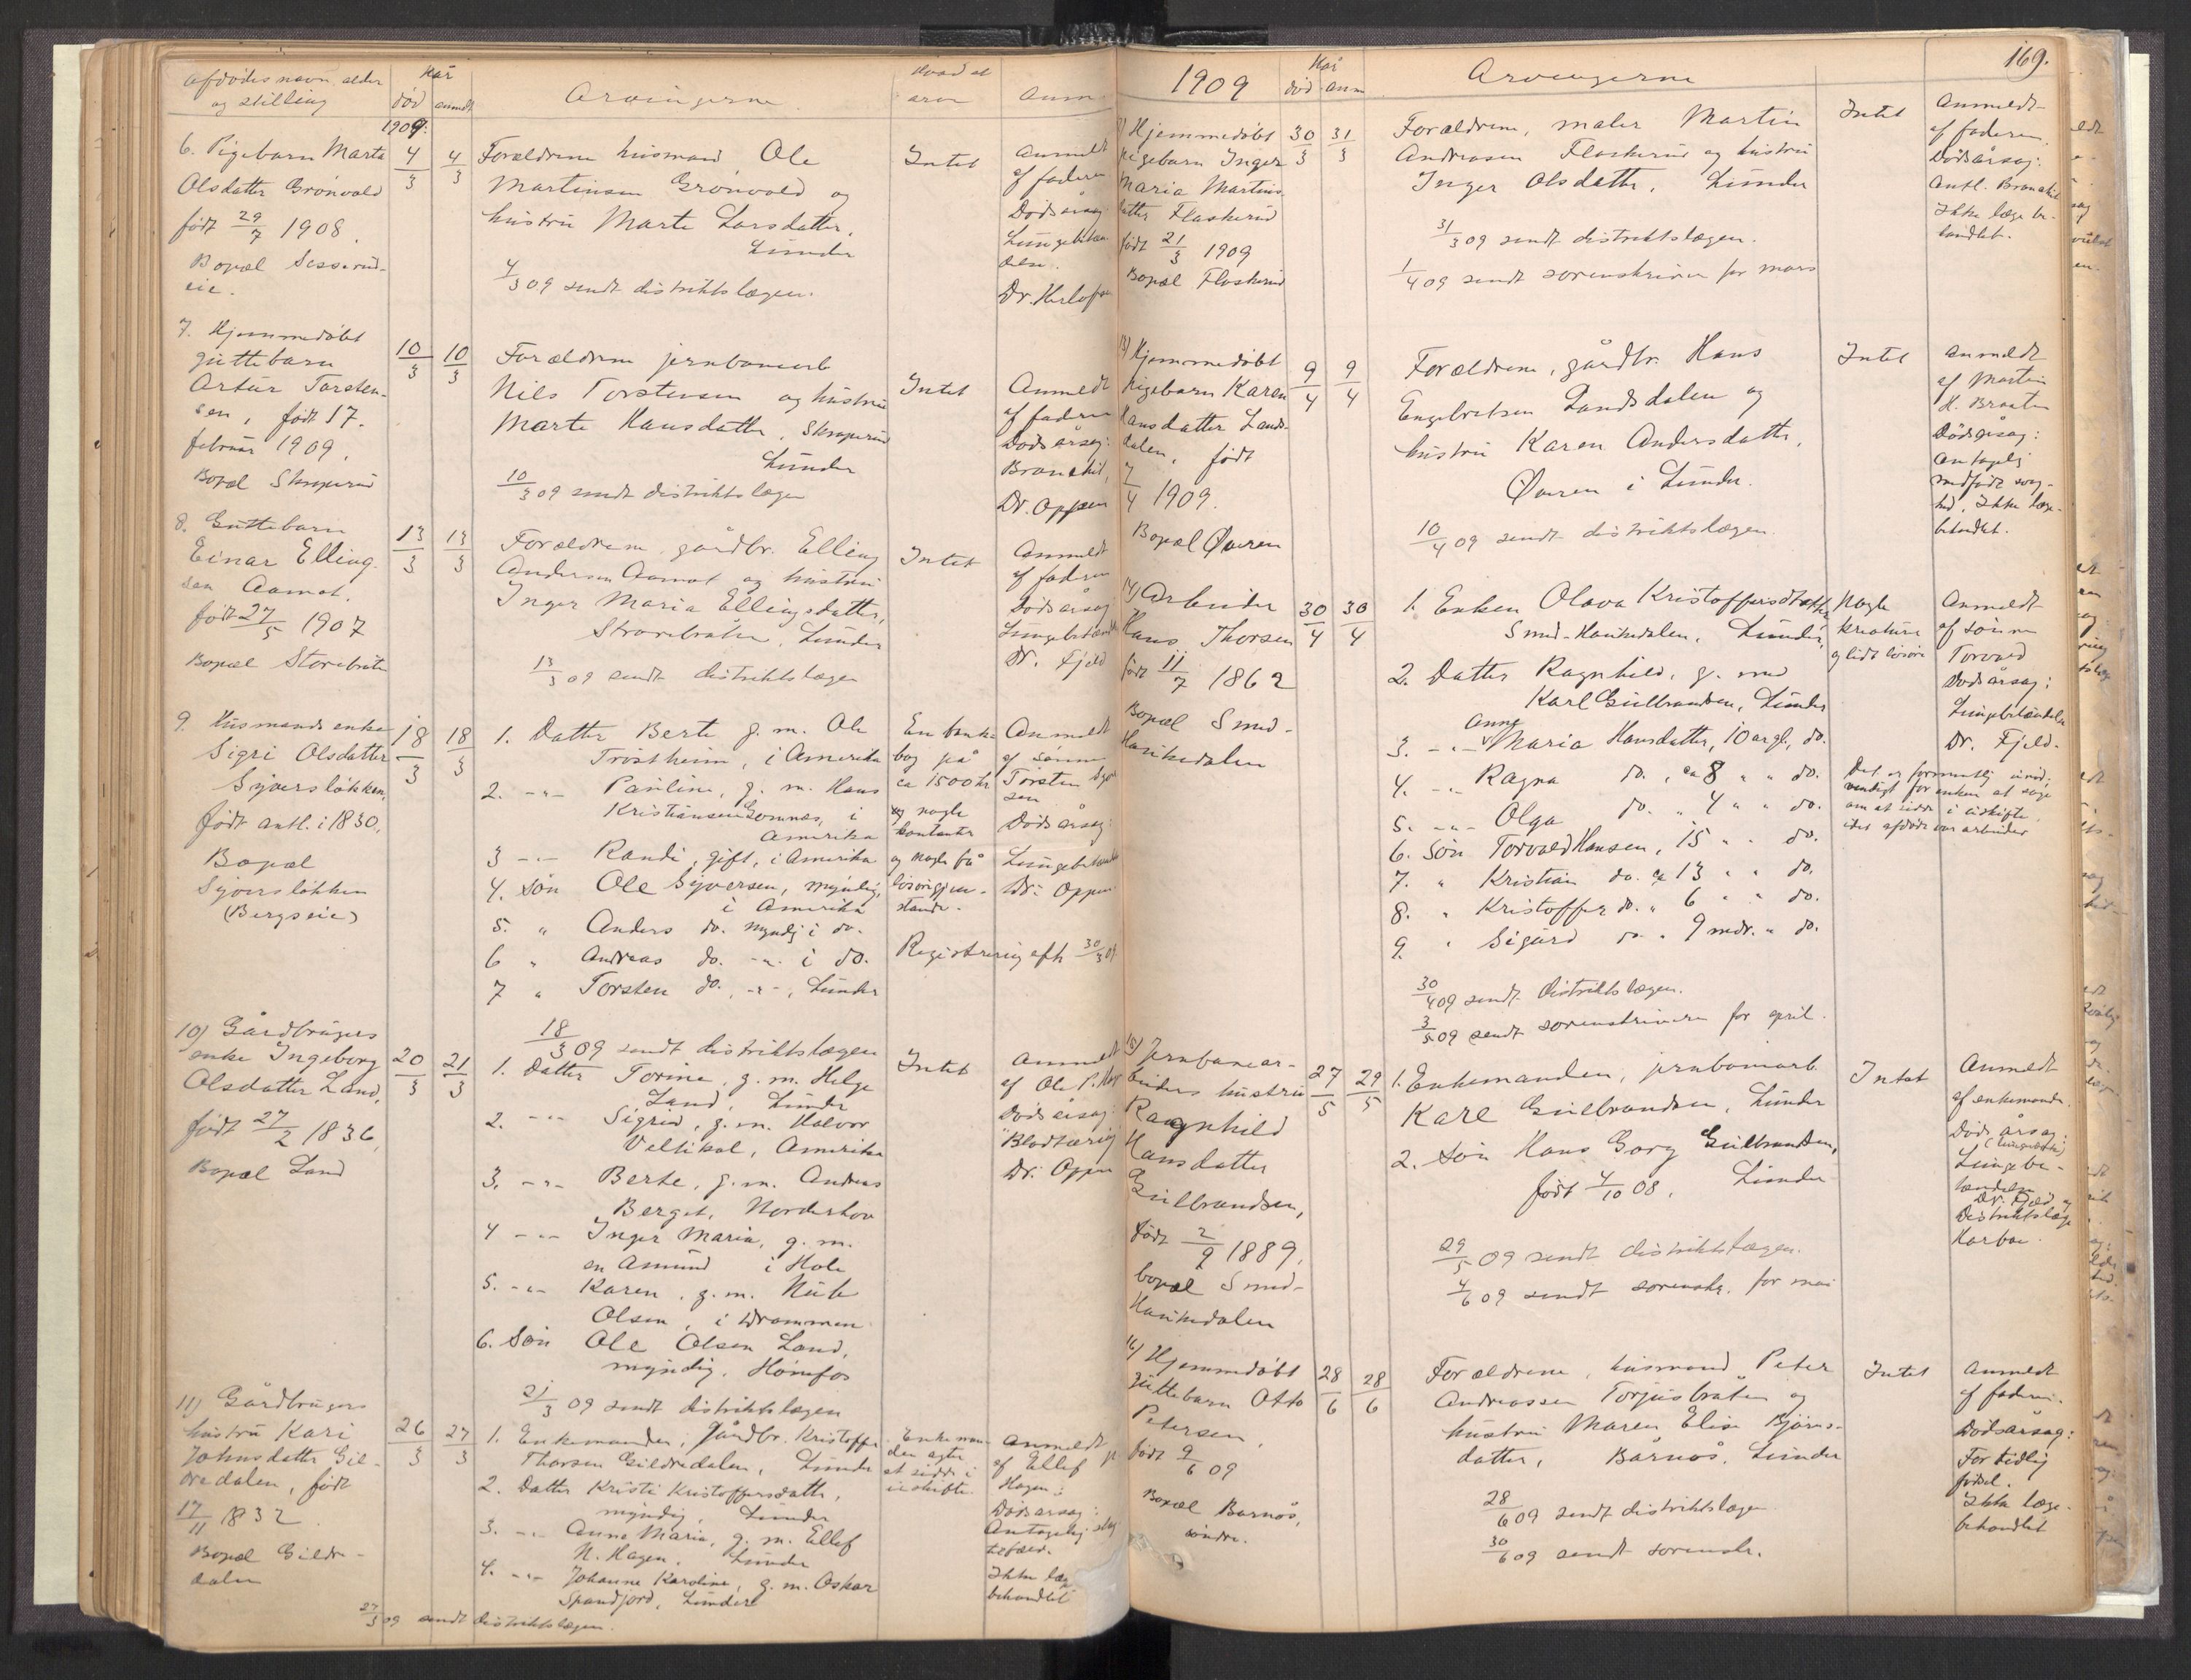 Afdødes navn, alder
og stilling
Når
død
anmeldt
Arvingerne
Hvad at
arve
Anm
1909:
6. Pigebarn Marta
Olsdatter Grönvold
født 29/7 1908.
Bopæl
eie.
4/3
4/3
Forældrene husmand Ole
Martinsen Grönvold og
hustru Marte Larsdatter,
Lunder
4/3 09 sendt distriktslægen.
Intet
Anmeldt
af faderen
Dødsårsag:
Dr.
7. Hjemmedøbt
guttebarn
Artur Torsten-
sen, født 17.
februar 1909.
Bopæl
10/3
10/3
Forældrene jernbanearb
Nils Torstensen og hustru
Marte Hansdatter,
Lunder
10/3 09 sendt distriktslægen
Intet
Anmeldt
af faderen
Dødsårsag:
Bronchit,
Dr. Oppen
8. Guttebarn
Einar Elling-
sen Aamot,
født 27/5 1907
Bopæl Storebråten
13/3
13/3
Forældrene gårdbr. Elling
Andersen Aamot og hustru
Inger Maria Ellingsdatter,
Storebråten, Lunder
13/3 09 sendt distriktslægen
Intet
Anmeldt
af faderen
Dødsårsag
Dr. Fjeld
9. Husmands enke
Sigri Olsdatter
Sjversløkken,
født antl. i 1830.
Bopæl
Sjversløkken
(Bergseie)
18/3
18/3
1. Datter Berte g. m. Ole
Trostheim, i Amerika
2. -"- Pauline, g. m. Hans
Kristiansen, i
Amerika
3 -"- Randi, gift, i Amerika
4. Søn Ole Syversen, myndig,
i Amerika
5. " Anders do. myndig i do.
6 " Andreas do. -"- i do.
7 " Torsten do. -"-, Lunder
18/3 09 sendt distriktslægen
En bank
bog på
ca 1500 kr
og nogle
kontanter
og nogle få
løsøregjen-
stande.
Registrering afh 30/3 09
Anmeldt
af sønnen
Torsten
Dødsårsag:
Dr: Oppen
10) Gårdbrugers
enke Ingeborg
Olsdatter Land,
født 27/2 1836,
Bopæl Land
20/3
21/3
1. Datter Torine, g. m. Helge
Land, Lunder
2. -"- Sigrid, g. m. Halvor
Veltikol, Amerika
3. -"- Berte, g. m. Andreas
Berget, Norderhov
4 -"- Inger Maria, g. m.
en Amund i Hole
5. -"- Karen, g. m.
Olsen, i Drammen
6. Søn Ole Olsen Land,
myndig, Hønefos
21/3 09 sendt distriktslægen
Intet
Anmeldt
af Ole P.
Dødsårsag:
Dr: Oppen
11) Gårdbrugers
hustru Kari
Johnsdatter Gil-
dredalen, født
17/11 1832.
Bopæl Gildre-
dalen
26/3
27/3
1. Enkemanden, Gårdbr. Kristoffer
Thorsen Gildredalen, Lunder
2. Datter Kristi Kristoffersdatter,
myndig, Lunder
3. -"- Anne Maria, g. m. Ellef
N. Hagen, Lunder
4. -"- Johanne Karoline, g. m. Oskar
Spandjord, Lunder
27/3 09 sendt distriktslægen.
Enkeman-
den agter
at sidde i
uskifte.
Anmeldt
af Ellef
Hagen:
Dødsårsag:
Antagelig slag
tilfælde.
Ikke læge
behandlet
1909
Når
død
anm
Arvingerne
169.
Hjemmedøbt
pigebarn Inger
Maria Martins-
datter Flaskerud
født 21/3 1909
Bopæl Flaskerud
30/3
31/3
Forældrene, maler Martin
Andreasen Flaskerud og hustru
Inger Olsdatter, Lunder
31/3 09 sendt distriktslægen.
1/4 09 sendt sorenskriveren for mars
Intet
Anmeldt
af faderen
Dødsårsag:
Antl. Bronchit
Ikke læge be-
handlet.
13) Hjemmedøbt
pigebarn Karen
Hansdatter Lands-
dalen, født
7/4 1909.
Bopæl Øveren
9/4
9/4
Forældrene, gårdbr. Hans
Engebretsen Landsdalen og
hustru Karen Andersdatter,
Øveren i Lunder.
10/4 09 sendt distriktslægen
Intet
Anmeldt
af Martin
H. Braaten
Dödsårsag:
antagelig
medfødt svag-
hed. Ikke læge-
behandlet.
14) Arbeider
Hans Thorsen
født 11/7 1862
Bopæl Smed-
Haukedalen
30/4
30/4
1. Enken Olava Kristoffersdatter
Smed-Haukedalen, Lunder,
2. Datter Ragnhild, g. med
Karl Gulbrandsen, Lunder
Anne
3. -"- Maria Hansdatter, 10 ar gl., do.
4. -"- Ragna do., ca 8 " " do.
5. -"- Olga do. " 4 " " do.
6. Søn Torvald Hansen, 15 " " do.
7. " Kristian do. ca 13 " " do.
8. " Kristoffer do. " 6 " " do.
9. " Sigurd do. " 9 mdr. " do.
30/4 09 sendt distriktslægen.
3/5 09 sendt sorenskriveren for april.
Nogle
kreature
og lidt løsøre
Anmeldt
af sønnen
Torvald
Dødsårsag:
Lungebetændelse
Dr. Fjeld.
Det er formentlig unød-
vendigt for enken at søge
om at sidde i uskifte,
idet afdøde var arbeider
15) Jernbanear-
beiders hustru
Ragnhild
Hansdatter
Gulbrandsen,
født 2/9 1889,
bopæl Smed-
Haukedalen
27/5
29/5
1. Enkemanden, jernbanearb.
Karl Gulbrandsen, Lunder
2. Søn Hans Gorg Gulbrandsen,
født 4/10 08, Lunder
29/5 09 sendt distriktslægen.
4/6 09 sendt sorenskr. for mai
Intet
Anmeldt
af enkemanden.
Dødsårsag:
Lungebe-
tændelse
Dr. Fjeld og
Distriktslæge
Harboe.
16) Hjemmedøbt
guttebarn Otto
Petersen,
født 9/6 09
Bopæl Barnås,
søndre.
28/6
28/6
Forældrene, husmand Peter
Andreassen Torjusbråten og
hustru Maren Elise Bjørns-
datter, Bårnås, Lunder
28/6 09 sendt distriktslægen
30/6 09 sendt sorenskr.
Intet
Anmeldt
af faderen.
Dødsårsag:
For tidlig
fødsel.
Ikke læge-
behandlet